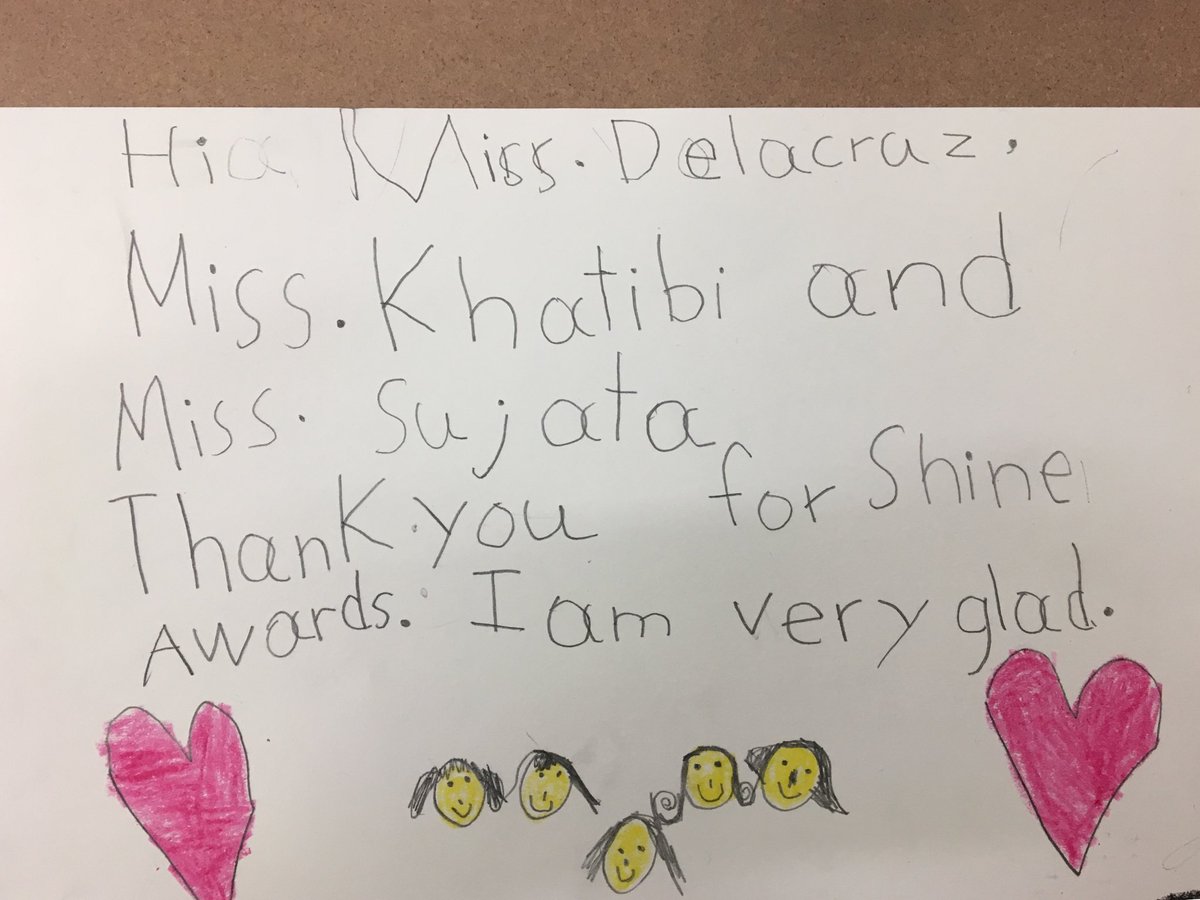 Hi Miss. Delacraz.
Miss. Khatibi and
Miss. Sujata
Thank.you for Shine
Awards. I am very glad.